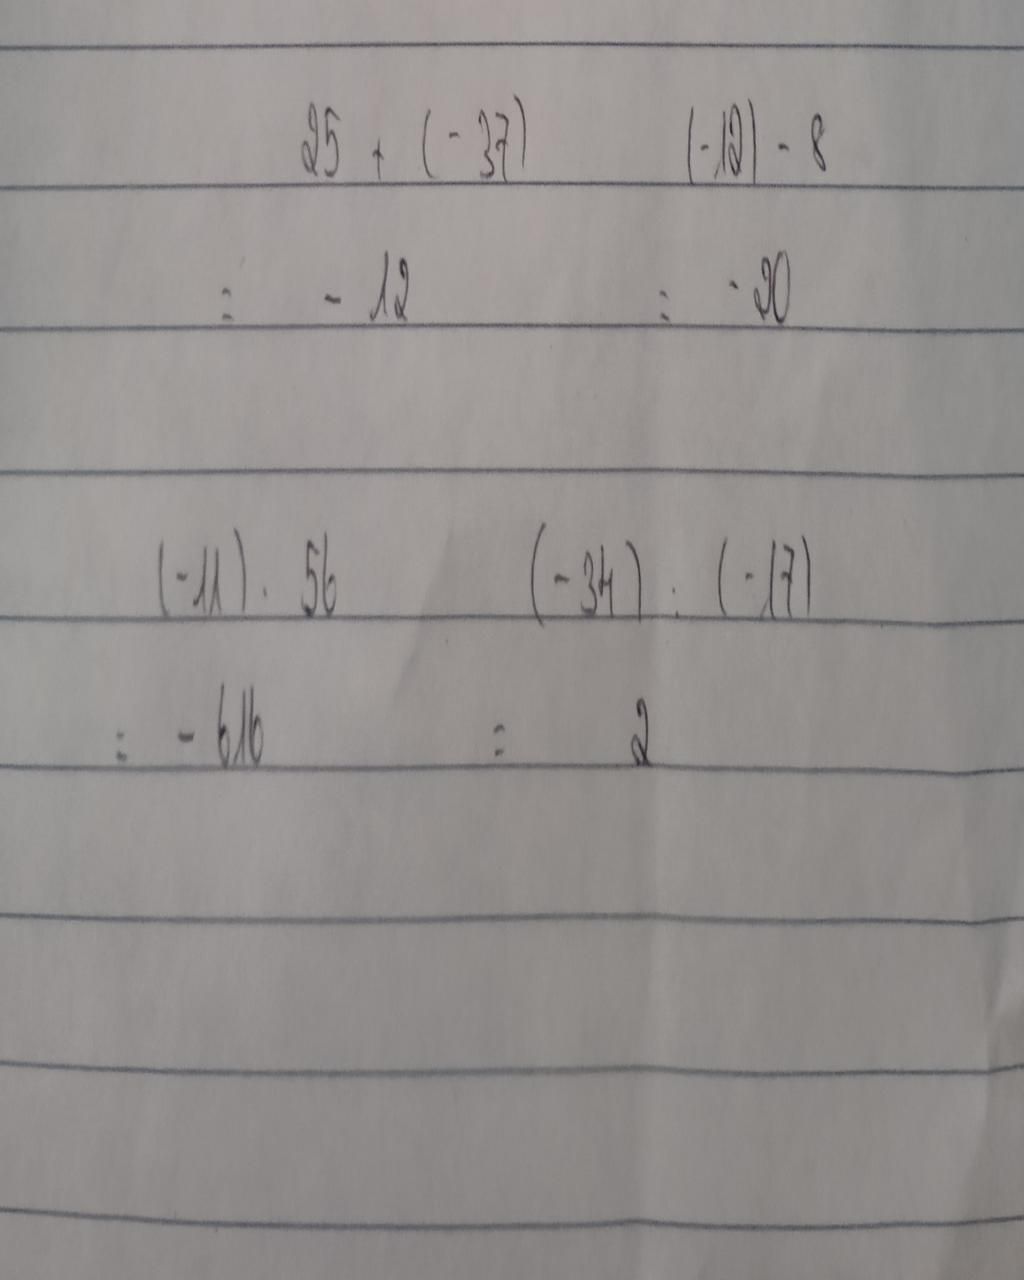 25 + (-37) (-12) - 8
= - 12 = -20
(-11) . 56 (-34) : (-17)
= - 616 = 2